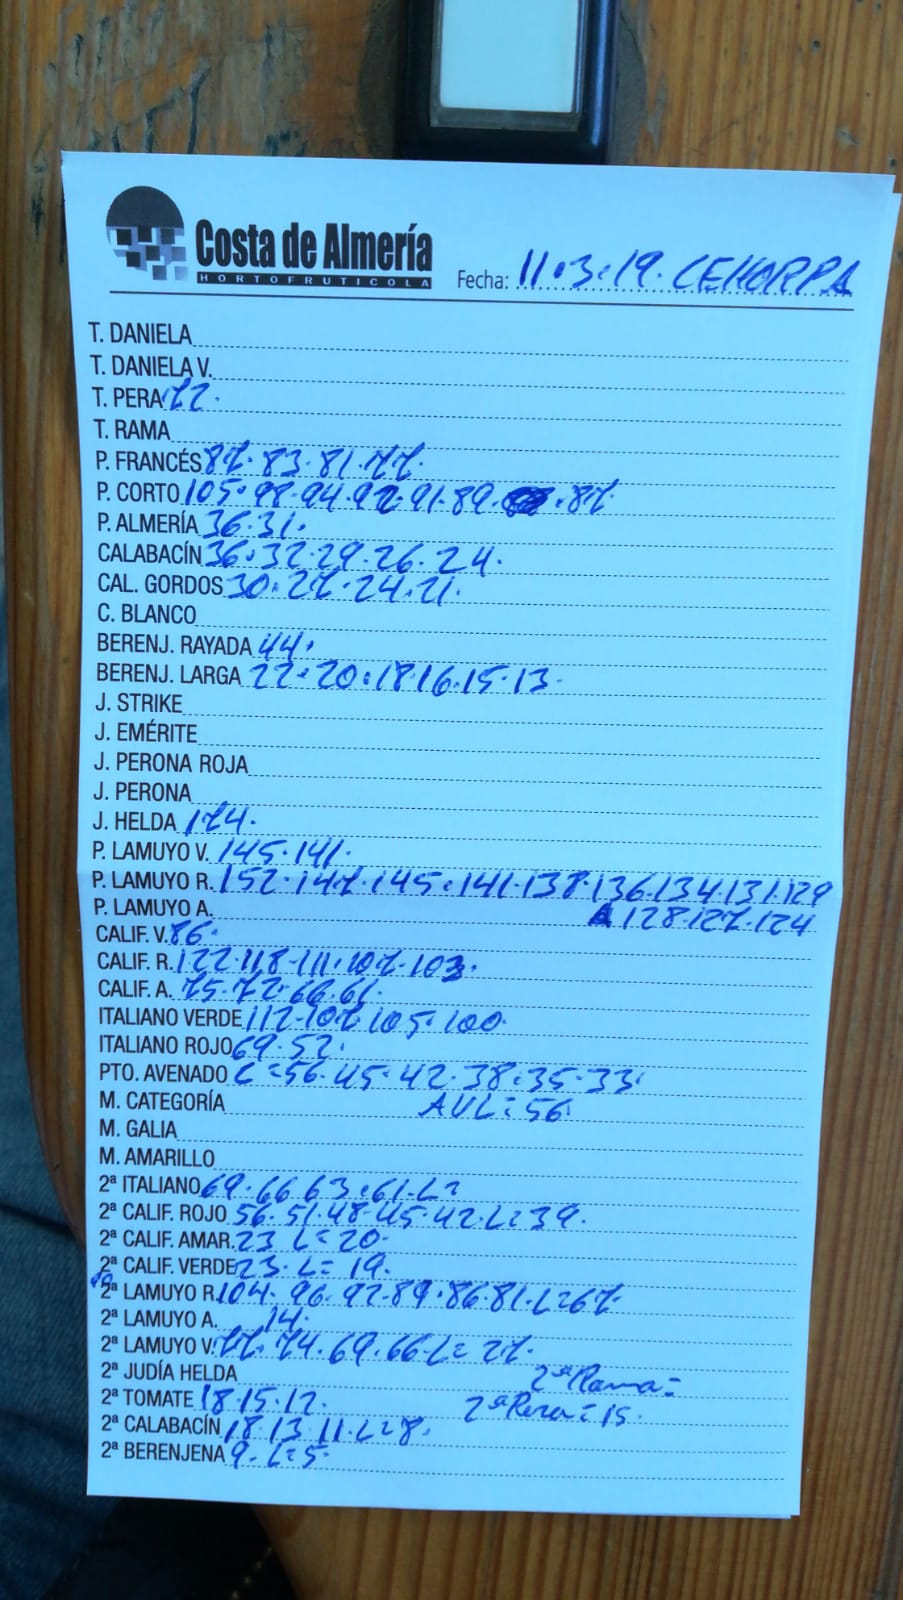 Costa de Almería
HORTOFRUTICOLA
Fecha: 11.3.19. CEHORPA
T. DANIELA
T. DANIELA V.
T. PERA 72.
T. RAMA
P. FRANCÉS 87. 83. 81. 77.
P. CORTO 105. 98. 94. 92. 91. 89. . 87
P. ALMERÍA 36. 31.
CALABACÍN 36. 32. 29. 26. 24.
CAL. GORDOS 30. 27. 24. 21.
C. BLANCO
BERENJ. RAYADA 44.
BERENJ. LARGA 22. 20. 18. 16. 15. 13.
J. STRIKE
J. EMÉRITE
J. PERONA ROJA
J. PERONA
J. HELDA 174.
P. LAMUYO V. 145. 141.
P. LAMUYO R. 152. 147. 145. 141. 138. 136. 134. 131. 129
P. LAMUYO A. 128. 127. 124
CALIF. V. 86.
CALIF. R. 122. 118. 111. 107. 103.
CALIF. A. 75. 72. 66. 61.
ITALIANO VERDE 112. 107. 105. 100.
ITALIANO ROJO 69. 52.
PTO. AVENADO L=56. 45. 42. 38. 35. 33.
M. CATEGORÍA AVL=56.
M. GALIA
M. AMARILLO
2ª ITALIANO 69. 66. 63. 61. L=
2ª CALIF. ROJO 56. 51. 48. 45. 42. L=39.
2ª CALIF. AMAR. 23 L=20.
2ª CALIF. VERDE 23. L=19.
2ª LAMUYO R. 104. 96. 92. 89. 86. 81. L=67.
2ª LAMUYO A. 14.
2ª LAMUYO V. 77. 74. 69. 66. L=27.
2ª JUDÍA HELDA 2ª Rama=
2ª TOMATE 18. 15. 12. 2ª Pera=15.
2ª CALABACÍN 18. 13. 11. L=8.
2ª BERENJENA 9. L=5.